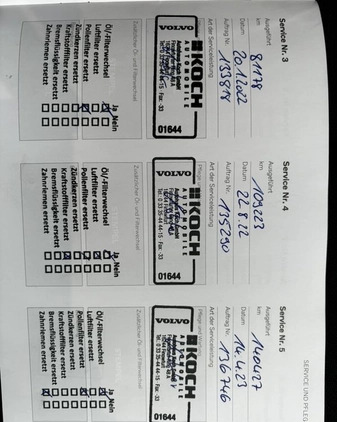 SERVICE UND PFLEG
Service Nr. 3
Ausgeführt
km 81178
Datum
Auftrag Nr. 133818
Art der Serviceleistung
VOLVO
KOCH
AUTOMOBILE
01644
Zusätzlicher Öl- und Filterwechsel
Ja Nein
Öl-/Filterwechsel
Luftfilter ersetzt
Pollenfilter ersetzt
Zündkerzen ersetzt
Kraftstofffilter ersetzt
Bremsflüssigkeit ersetzt
Zahnriemen ersetzt
Service Nr. 4
Ausgeführt
km 109223
Datum 22.8.22
Auftrag Nr. 135290
Art der Serviceleistung
VOLVO
KOCH
AUTOMOBILE
Tel.: 0 33 35-44 44-15 · Fax: -33
01644
Zusätzlicher Öl- und Filterwechsel
Ja Nein
Öl-/Filterwechsel
Luftfilter ersetzt
Pollenfilter ersetzt
Zündkerzen ersetzt
Kraftstofffilter ersetzt
Bremsflüssigkeit ersetzt
Zahnriemen ersetzt
Service Nr. 5
Ausgeführt
km 140427
Datum 14.4.23
Auftrag Nr. 136746
Art der Serviceleistung
VOLVO
KOCH
AUTOMOBILE
Tel.: 0 33 35-44 44-15 · Fax: -33
01644
Zusätzlicher Öl- und Filterwechsel
Ja Nein
Öl-/Filterwechsel
Luftfilter ersetzt
Pollenfilter ersetzt
Zündkerzen ersetzt
Kraftstofffilter ersetzt
Bremsflüssigkeit ersetzt
Zahnriemen ersetzt